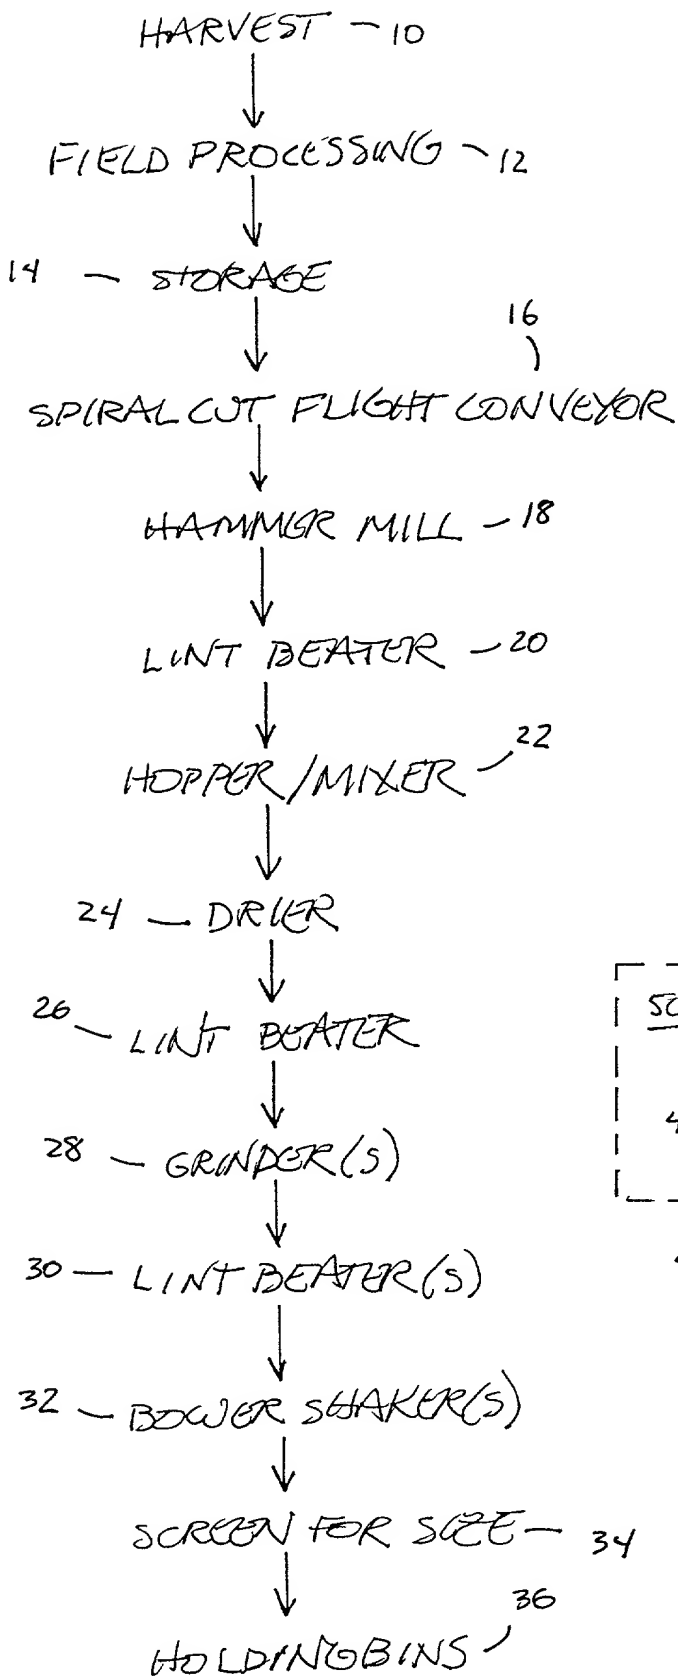 HARVEST - 10
FIELD PROCESSING - 12
14 - STORAGE
16
SPIRAL CUT FLIGHT CONVEYOR
HAMMER MILL - 18
LINT BEATER - 20
HOPPER/MIXER - 22
24 - DRIER
26 - LINT BEATER
50
28 - GRINDER(S)
4
30 - LINT BEATER(S)
32 - BOWER SHAKER(S)
SCREEN FOR SIZE - 34
36
HOLDING BINS